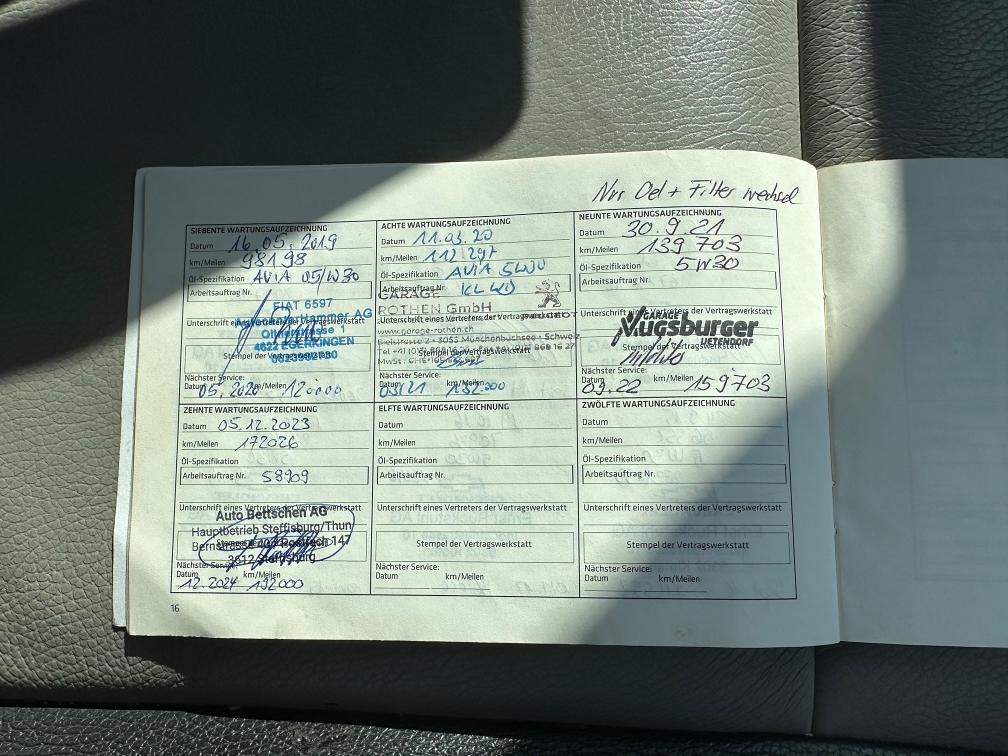 Nur Oel + Filter wechsel
SIEBENTE WARTUNGSAUFZEICHNUNG
Datum 16.05.2019
km/Meilen 98198
Öl-Spezifikation AVIA 05/W30
Arbeitsauftrag Nr.
FIAT 6597
Hammer AG
Unterschrift eines Vertreters der Vertragswerkstatt
1
4622 EGERKINGEN
Stempel der Vertragswerkstatt
Nächster Service:
Datum 05.2020 km/Meilen 120000
ACHTE WARTUNGSAUFZEICHNUNG
Datum 11.03.20
km/Meilen 112297
Öl-Spezifikation AVIA 5W30
Arbeitsauftrag Nr.
GARAGE
ROTHEN GmbH
Unterschrift eines Vertreters der Vertragswerkstatt
www.garage-rothen.ch
3053 Münchenbuchsee - Schweiz
Stempel der Vertragswerkstatt
Nächster Service:
Datum 03/21 km/Meilen 132000
NEUNTE WARTUNGSAUFZEICHNUNG
Datum 30.9.21
km/Meilen 139703
Öl-Spezifikation 5W30
Arbeitsauftrag Nr.
Unterschrift eines Vertreters der Vertragswerkstatt
GARAGE
Vugsburger
UETENDORF
Stempel der Vertragswerkstatt
Nächster Service:
Datum 09.22 km/Meilen 159703
ZEHNTE WARTUNGSAUFZEICHNUNG
Datum 05.12.2023
km/Meilen 172026
Öl-Spezifikation
Arbeitsauftrag Nr. 58909
Unterschrift eines Vertreters der Vertragswerkstatt
Auto Bettschen AG
Hauptbetrieb Steffisburg/Thun
Bernstrasse Postfach 147
3612 Steffisburg
Nächster Service:
Datum 12.2024 km/Meilen 192000
ELFTE WARTUNGSAUFZEICHNUNG
Datum
km/Meilen
Öl-Spezifikation
Arbeitsauftrag Nr.
Unterschrift eines Vertreters der Vertragswerkstatt
Stempel der Vertragswerkstatt
Nächster Service:
Datum km/Meilen
ZWÖLFTE WARTUNGSAUFZEICHNUNG
Datum
km/Meilen
Öl-Spezifikation
Arbeitsauftrag Nr.
Unterschrift eines Vertreters der Vertragswerkstatt
Stempel der Vertragswerkstatt
Nächster Service:
Datum km/Meilen
16